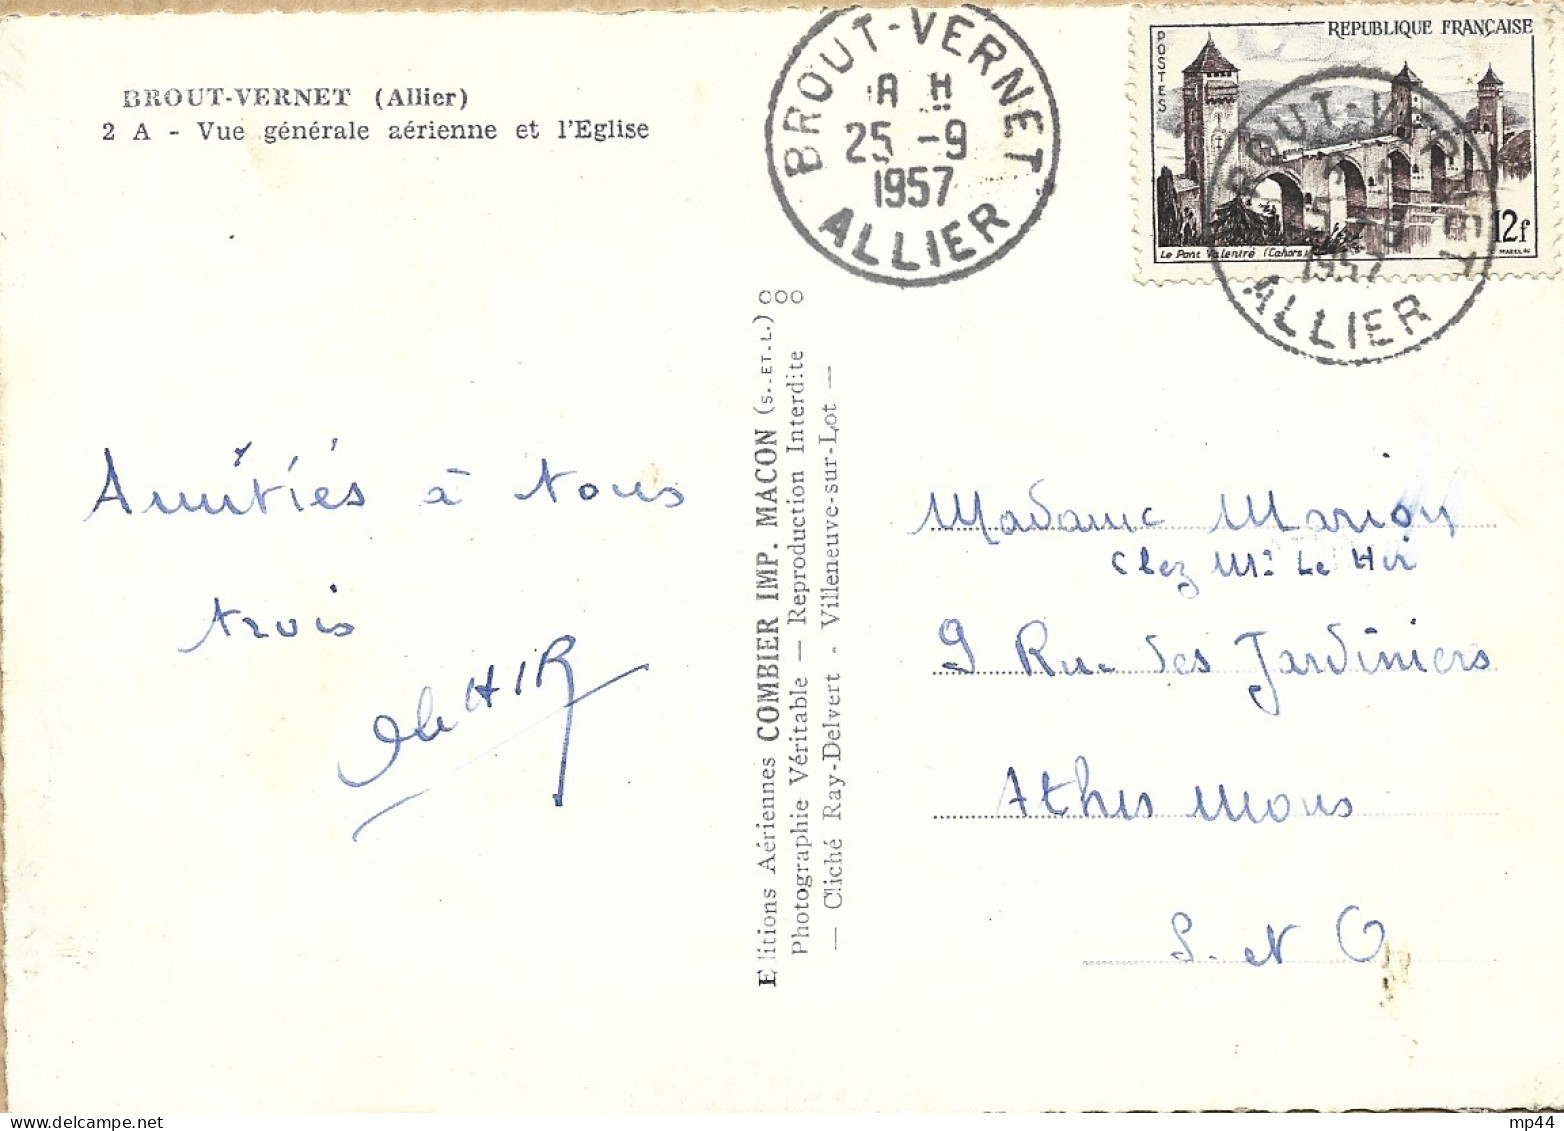 BROUT-VERNET (Allier)
2 A - Vue générale aérienne et l'Eglise
BROUT-VERNET
25 -9
1957
ALLIER
REPUBLIQUE FRANÇAISE
POSTES
12f
Le Pont Valentré (Cahors)
BROUT-VERNET
1957
ALLIER
Amitiés à tous
trois
le HIR
Editions Aériennes COMBIER IMP. MACON (S.-ET-L.)
Photographie Véritable — Reproduction Interdite
— Cliché Ray-Delvert - Villeneuve-sur-Lot —
Madame Marion
chez Mr Le Hir
9 Rue des Jardiniers
Athis Mons
S. et O
mp44